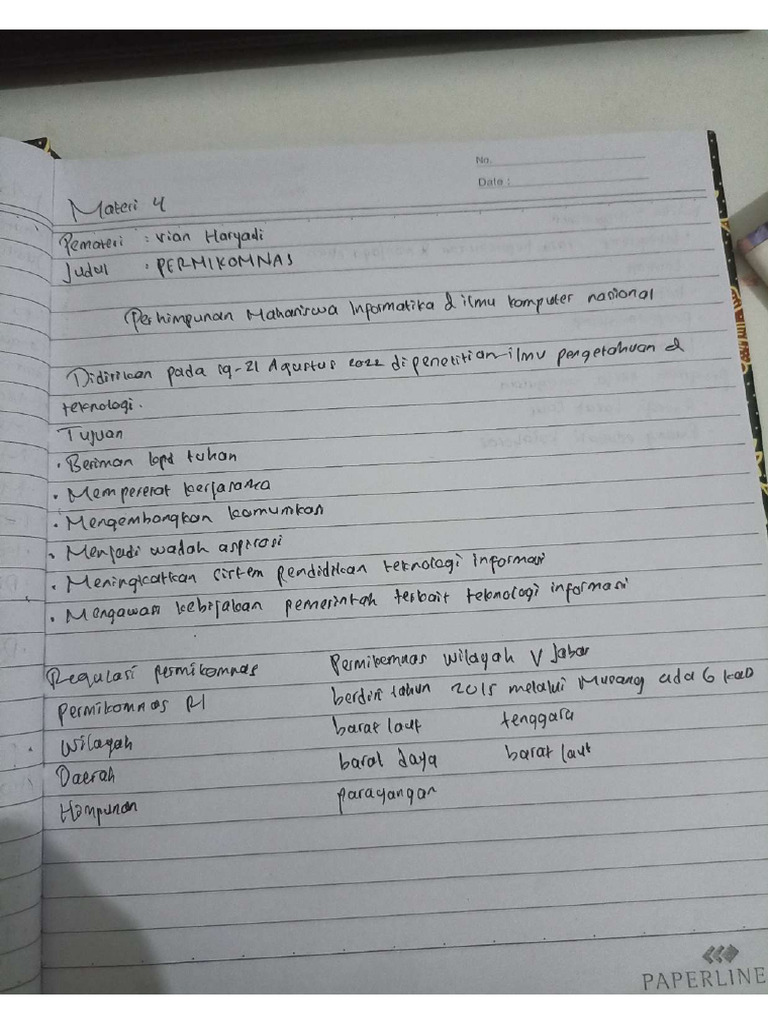 No.
Date :
Materi 4
Pemateri : vian Haryadi
Judul : PERMIKOMNAS
Perhimpunan Mahasiswa Informatika & ilmu komputer nasional
Didirikan pada 19-21 Agustus 2022 di penelitian ilmu pengetahuan &
teknologi.
Tujuan
• Beriman kpd tuhan
• Mempererat kerjasama
• Mengembangkan komunikasi
• Menjadi wadah aspirasi
• Meningkatkan sistem pendidikan teknologi informasi
• Mengawasi kebijakan pemerintah terkait teknologi informasi
Regulasi permikomnas Permikomnas wilayah V Jabar
Permikomnas RI berdiri tahun 2015 melalui Musang ada 6
Wilayah barat laut tenggara
Daerah barat daya barat laut
Himpunan parayangan
PAPERLINE